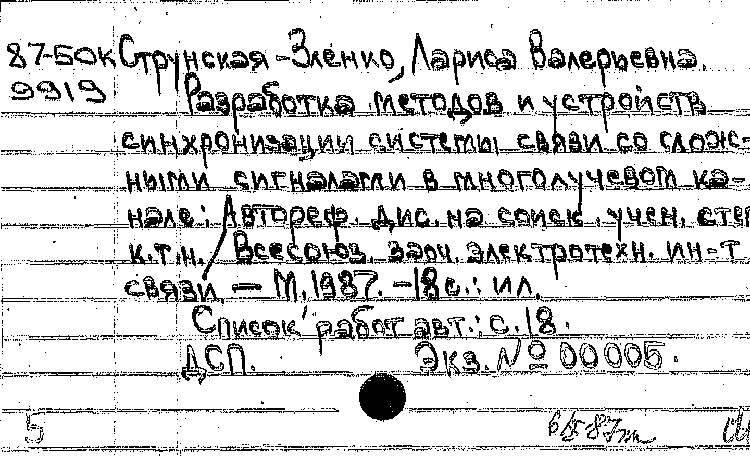 87-БОК Струнская-Зленко, Лариса Валерьевна.
9919 Разработка методов и устройств
синхронизации системы связи со слож-
ными сигналами в многолучевом ка-
нале: Автореф. дис. на соиск. учен. степ
к.т.н. / Всесоюз. заоч. электротехн. ин-т
связи. — М, 1987. — 18 с.: ил.
Список работ авт.: с. 18.
ДСП. Экз. № 00005.
5